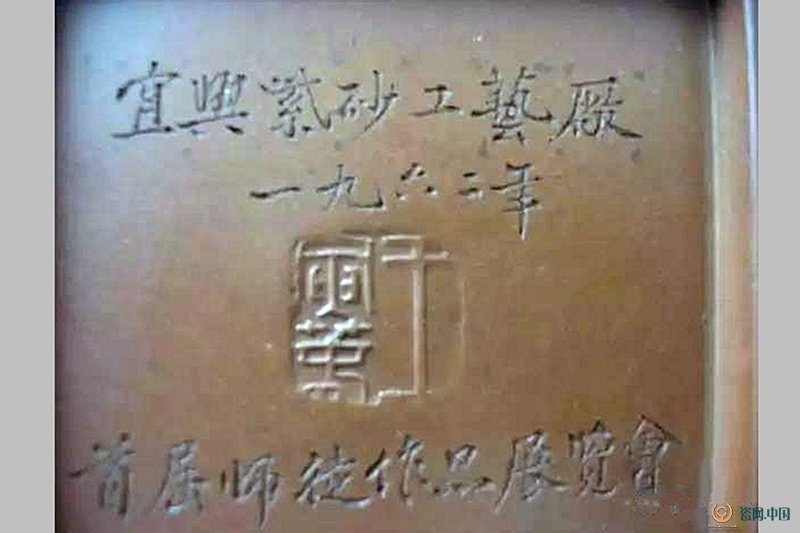 宜興紫砂工藝厰
一九六二年
首届师徒作品展覽會
瓷网.中国